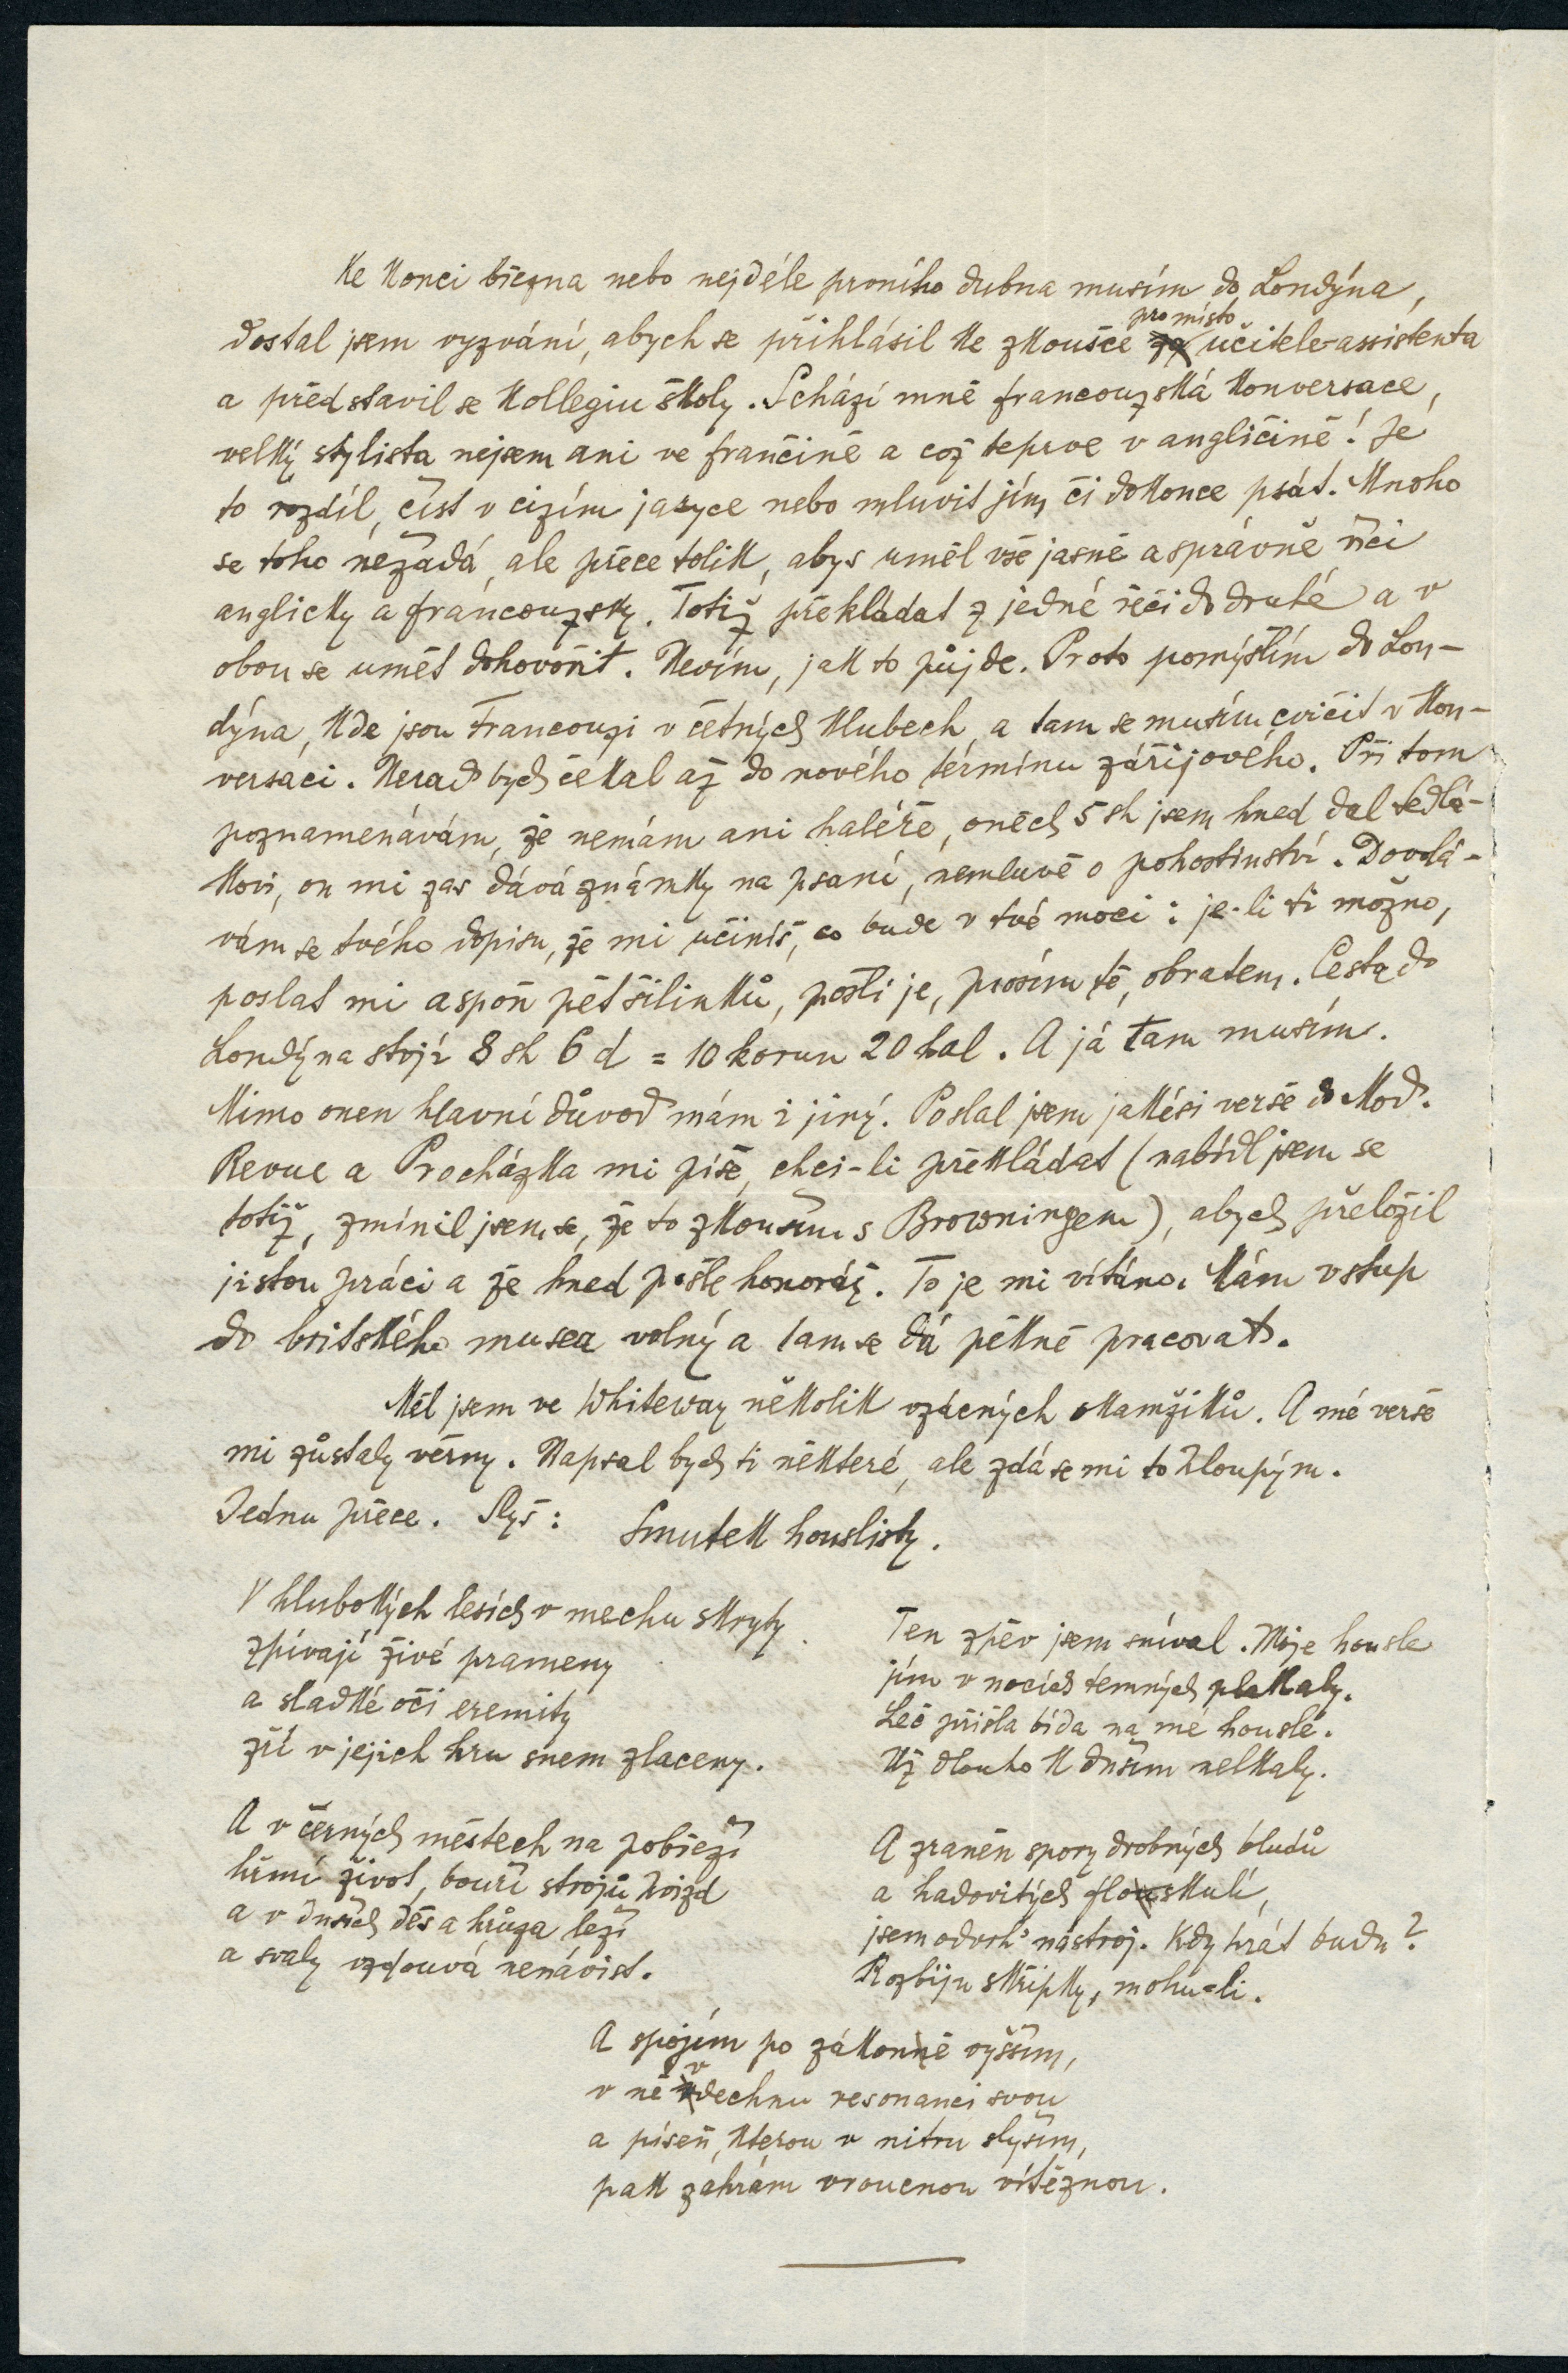 Ke konci března nebo nejdéle prvního dubna musím do Londýna,
dostal jsem vyzvání, abych se přihlásil ke zkoušce pro místo učitele-assistenta
a představil se kollegiu školy. Schází mně francouzská konversace,
velký stylista nejsem ani ve frančině a což teprve v angličině! Je
to rozdíl, číst v cizím jazyce nebo mluvit jím, či dokonce psát. Mnoho
se toho nežádá, ale přece tolik, abys uměl vše jasně a správně říci
anglicky a francouzsky. Totiž překládat z jedné řeči do druhé a v
obou se umět dohovořit. Nevím, jak to půjde. Proto pomýšlím do Lon-
dýna, kde jsou Francouzi v četných klubech a tam se musím cvičit v kon-
versaci. Nerad bych čekal až do nového termínu zářijového. Při tom
poznamenávám, že nemám ani haléře, oněch 5 sh jsem hned dal Sedlá-
kovi, on mi zas dává známky na psaní, nemluvě o pohostinství. Dovolá-
vám se tvého dopisu, že mi učiníš, co bude v tvé moci: je-li ti možno,
poslat mi aspoň pět šilinků, pošli je, prosím tě, obratem. Cesta do
Londýna stojí 8 sh 6 d = 10 korun 20 hal. A já tam musím.
Mimo onen hlavní důvod mám i jiný. Poslal jsem jakési verše do Mod.
Revue a Procházka mi píše, chci-li překládat (nabídl jsem se
totiž, zmínil jsem se, že to zkouším s Browningem), abych přeložil
jistou práci a že hned pošle honorář. To je mi vítáno. Mám vstup
do britského musea volný a tam se dá pěkně pracovat.
Měl jsem ve Whiteway několik vzácných okamžiků. A mé verše
mi zůstaly věrny. Napsal bych ti některé, ale zdá se mi to hloupým.
Jednu přece. Slyš: Smutek houslisty.
V hlubokých lesích v mechu skryty
zpívají živé prameny
a sladké oči eremity
zří v jejich hru snem zlaceny.
A v černých městech na pobřeží
hřmí život, bouří strojů hvizd
a v duších děs a hrůza leží
a svaly vzdouvá nenávist.
Ten zpěv jsem sníval. Moje housle
jím v nocích temných plakaly.
Leč přišla bída na mé housle.
Už dlouho k duším nelkaly.
A zraněn spory drobných bludů
a hadovitých floskulí,
jsem odvrh' nástroj. Kdy hrát budu?
Rozbiju skřipky, mohu-li.
A spojím po zákonně vyšším,
v ně vdechnu resonanci svou
a píseň, kterou v nitru slyším,
pak zahrám vroucnou vítěznou.